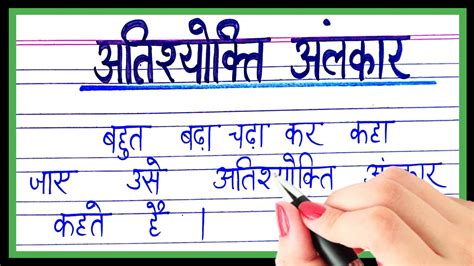 अतिश्योक्ति अंलकार
बहुत बढ़ा चढ़ा कर कहा
जाए उसे अतिश्योक्ति अंलकार
कहते हैं ।